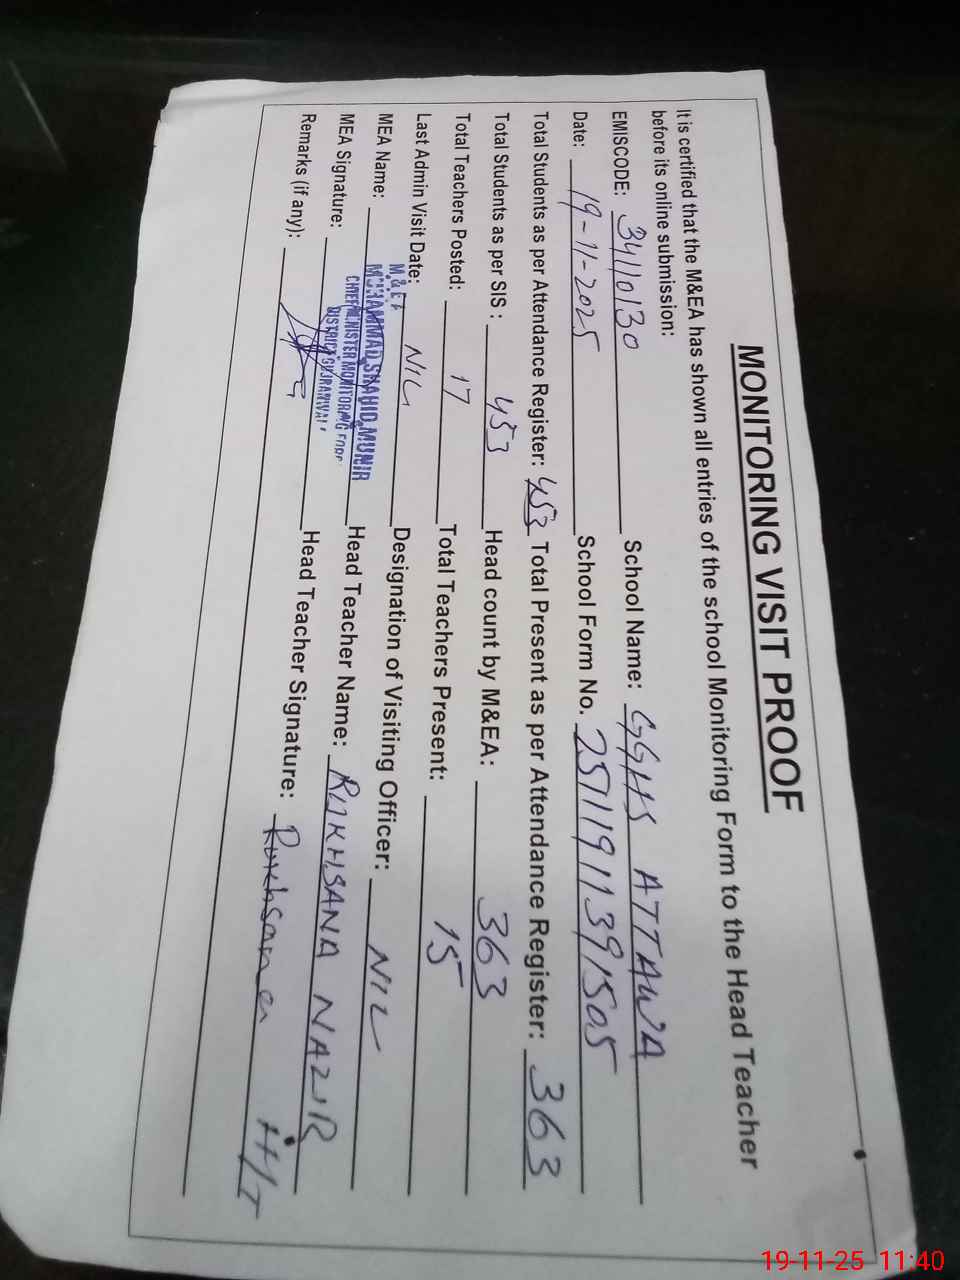 MONITORING VISIT PROOF
It is certified that the M&EA has shown all entries of the school Monitoring Form to the Head Teacher
before its online submission:
EMISCODE: 34110130 School Name: GGHS ATTAWA
Date: 19-11-2025 School Form No. 25111911391505
Total Students as per Attendance Register: 453 Total Present as per Attendance Register: 363
Total Students as per SIS: 453 Head count by M&EA: 363
Total Teachers Posted: 17 Total Teachers Present: 15
Last Admin Visit Date: NIL Designation of Visiting Officer: NIL
MEA Name: M&EA MUHAMMAD SHAHID MUNIR Head Teacher Name: RUKHSANA NAZIR
CHIEF MINISTER MONITORING FORC
DISTRICT GUJRANWALA
MEA Signature: Head Teacher Signature: Rukhsana H/T
Remarks (if any):
19-11-25 11:40